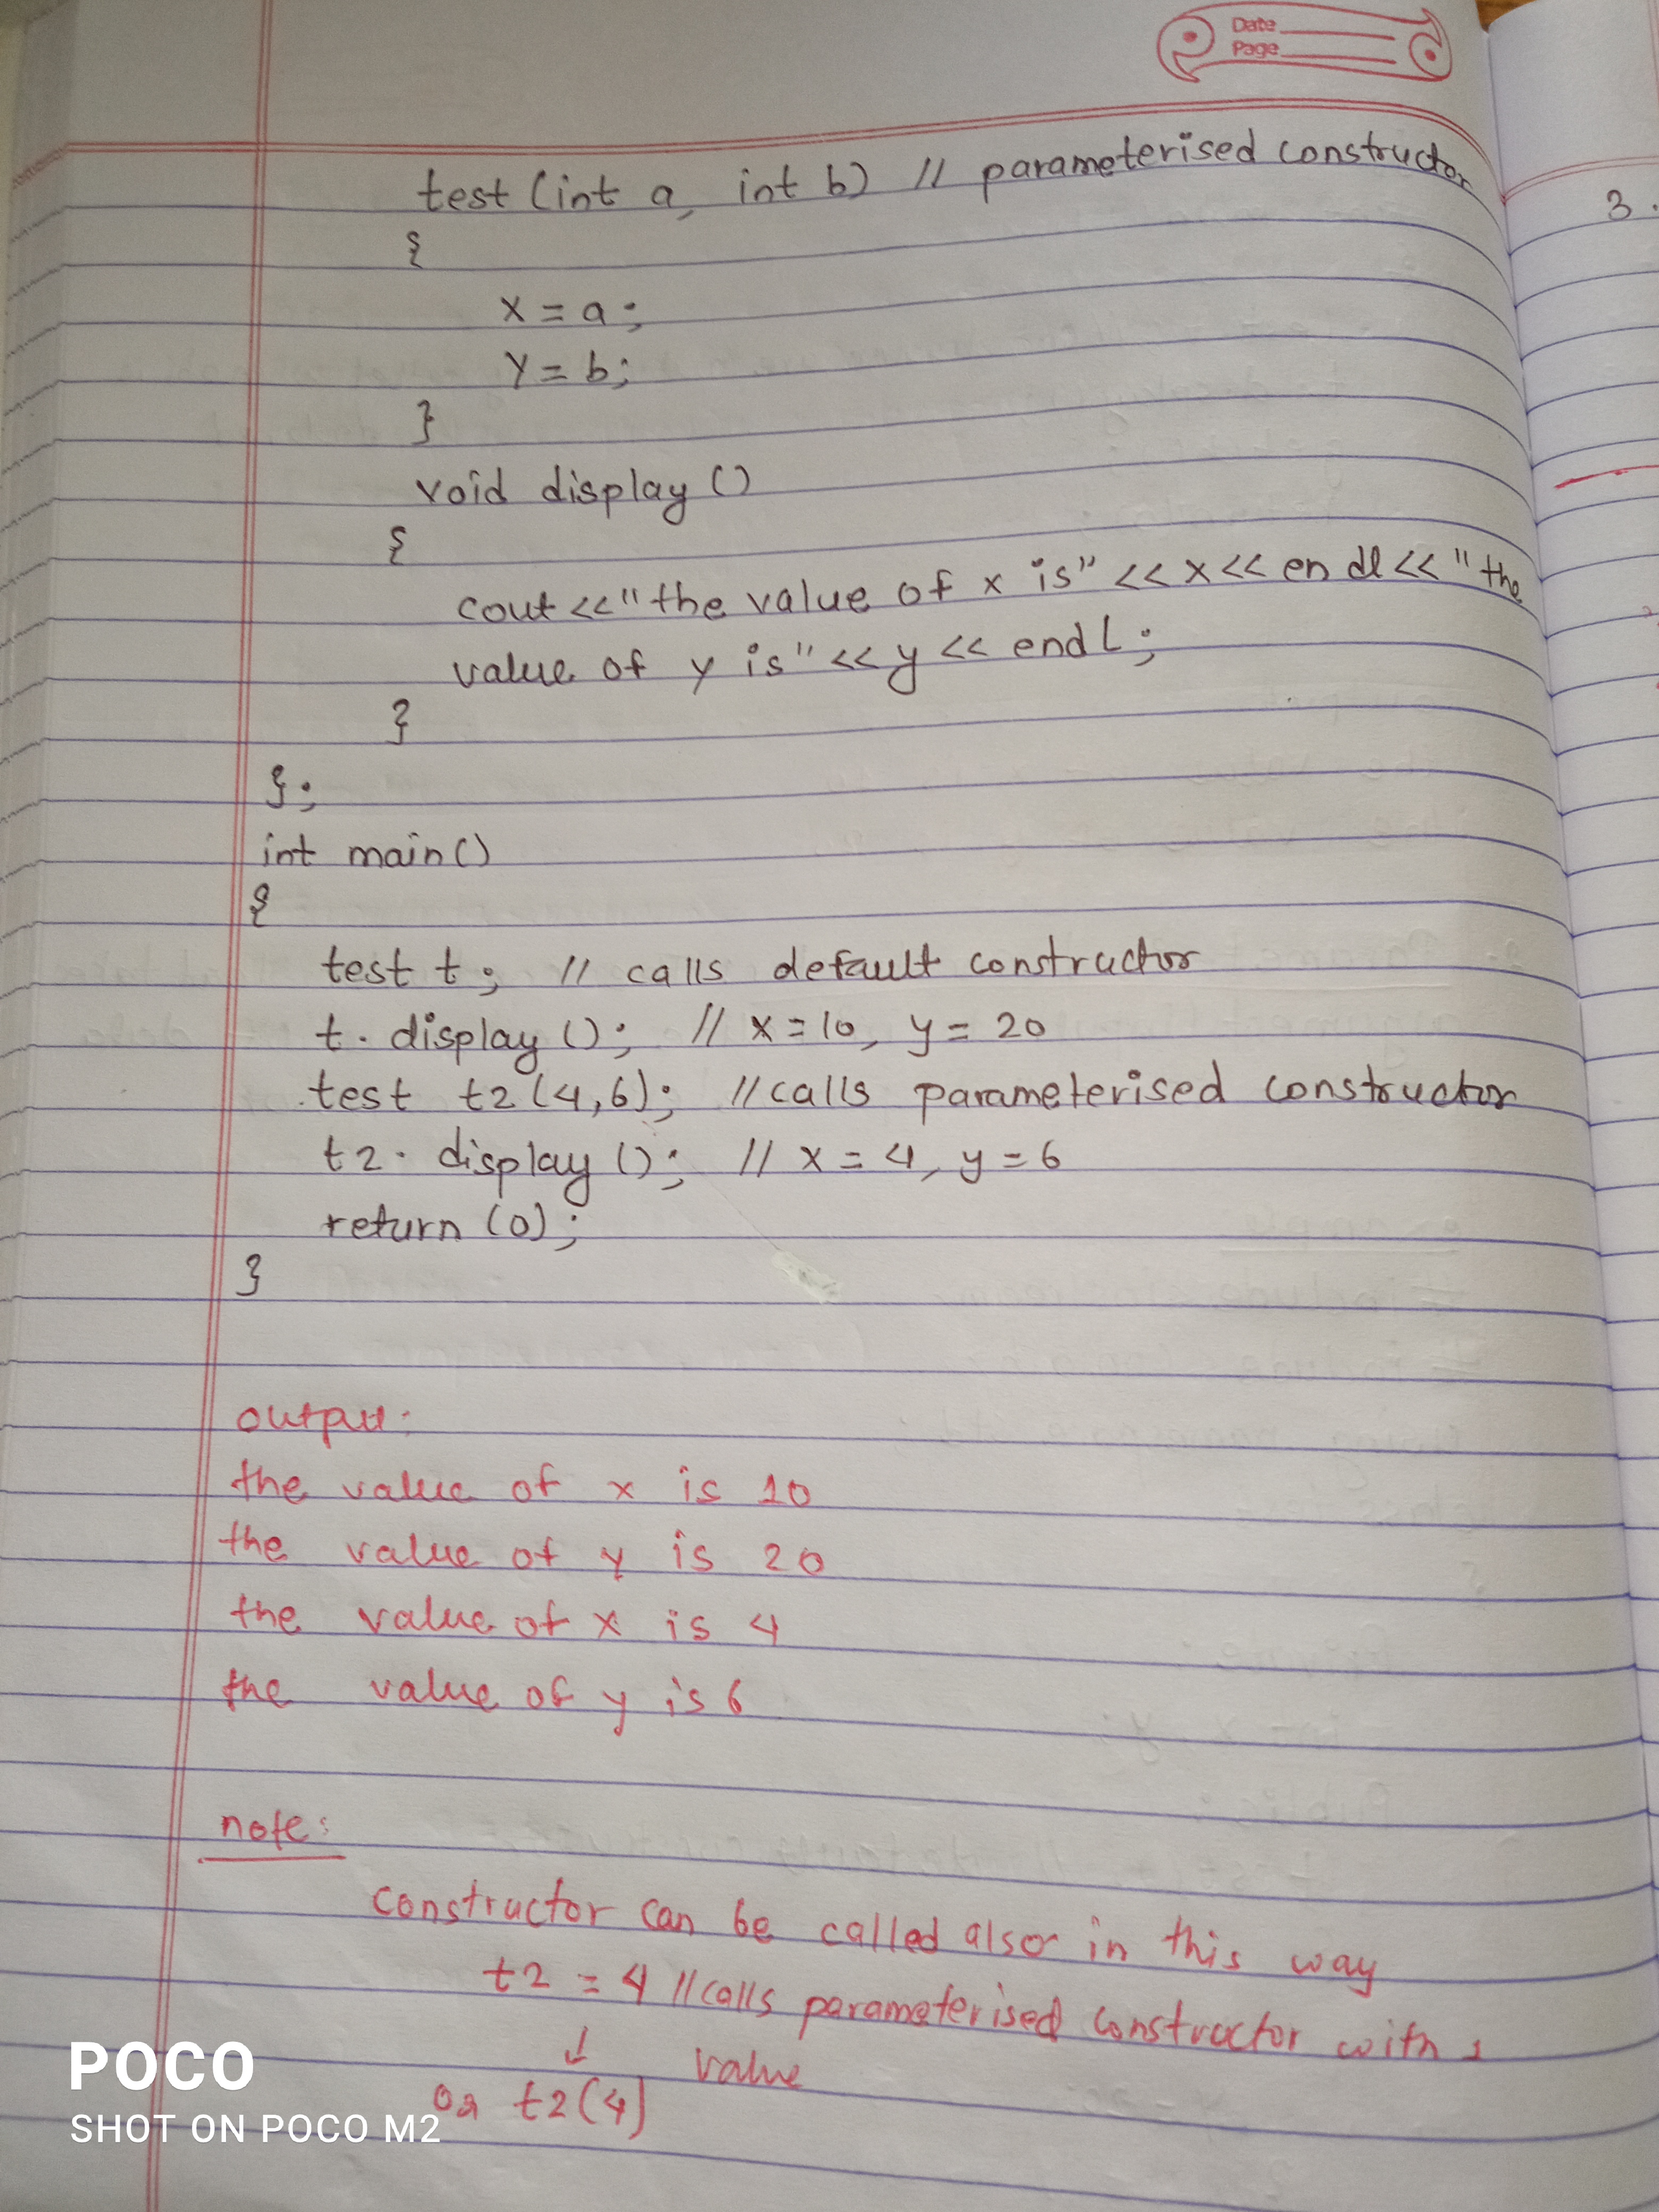 Date
Page
3.
test (int a, int b) // parameterised constructor
{
x = a;
y = b;
}
void display ()
{
cout << "the value of x is" << x << endl << "the
value of y is" << y << endl;
}
};
int main()
{
test t; // calls default constructor
t. display (); // x = 10, y = 20
test t2 (4,6); // calls parameterised constructor
t2. display (); // x = 4, y = 6
return (0);
}
output:
the value of x is 10
the value of y is 20
the value of x is 4
the value of y is 6
note:
constructor can be called also in this way
t2 = 4 // calls parameterised constructor with 1
↓ value
or t2(4)
POCO
SHOT ON POCO M2